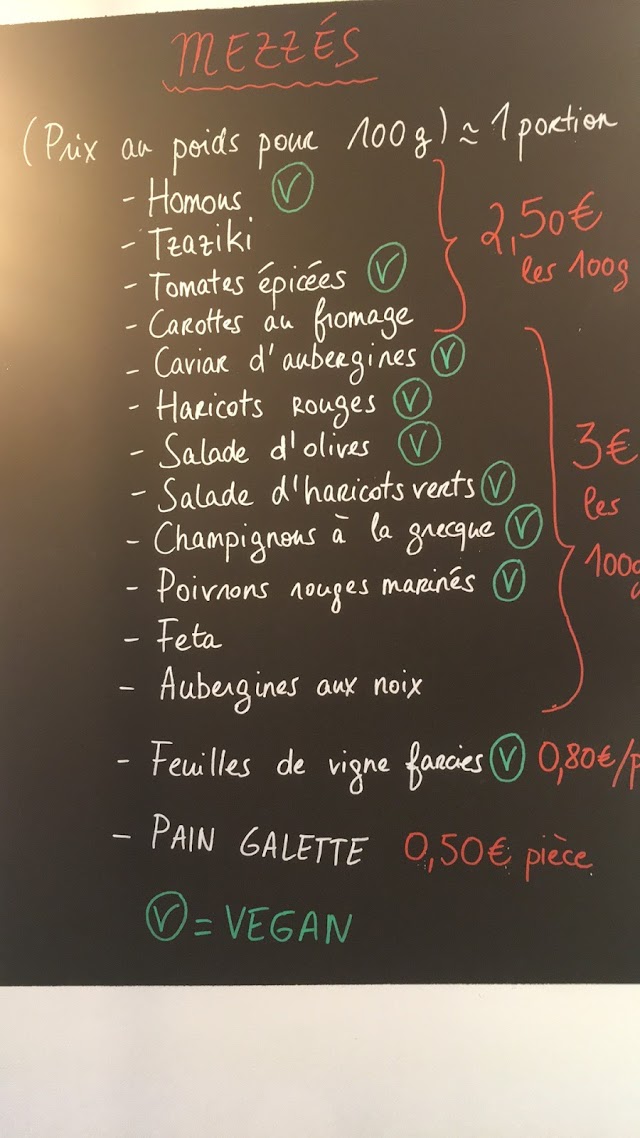 MEZZÉS
(Prix au poids pour 100g) ≈ 1 portion
- Homous Ⓥ
- Tzaziki
- Tomates épicées Ⓥ
- Carottes au fromage
2,50€
les 100g
- Caviar d'aubergines Ⓥ
- Haricots rouges Ⓥ
- Salade d'olives Ⓥ
- Salade d'haricots verts Ⓥ
- Champignons à la grecque Ⓥ
- Poivrons rouges marinés Ⓥ
- Feta
- Aubergines aux noix
3€
les
100g
- Feuilles de vigne farcies Ⓥ 0,80€/p
- PAIN GALETTE 0,50€ pièce
Ⓥ = VEGAN